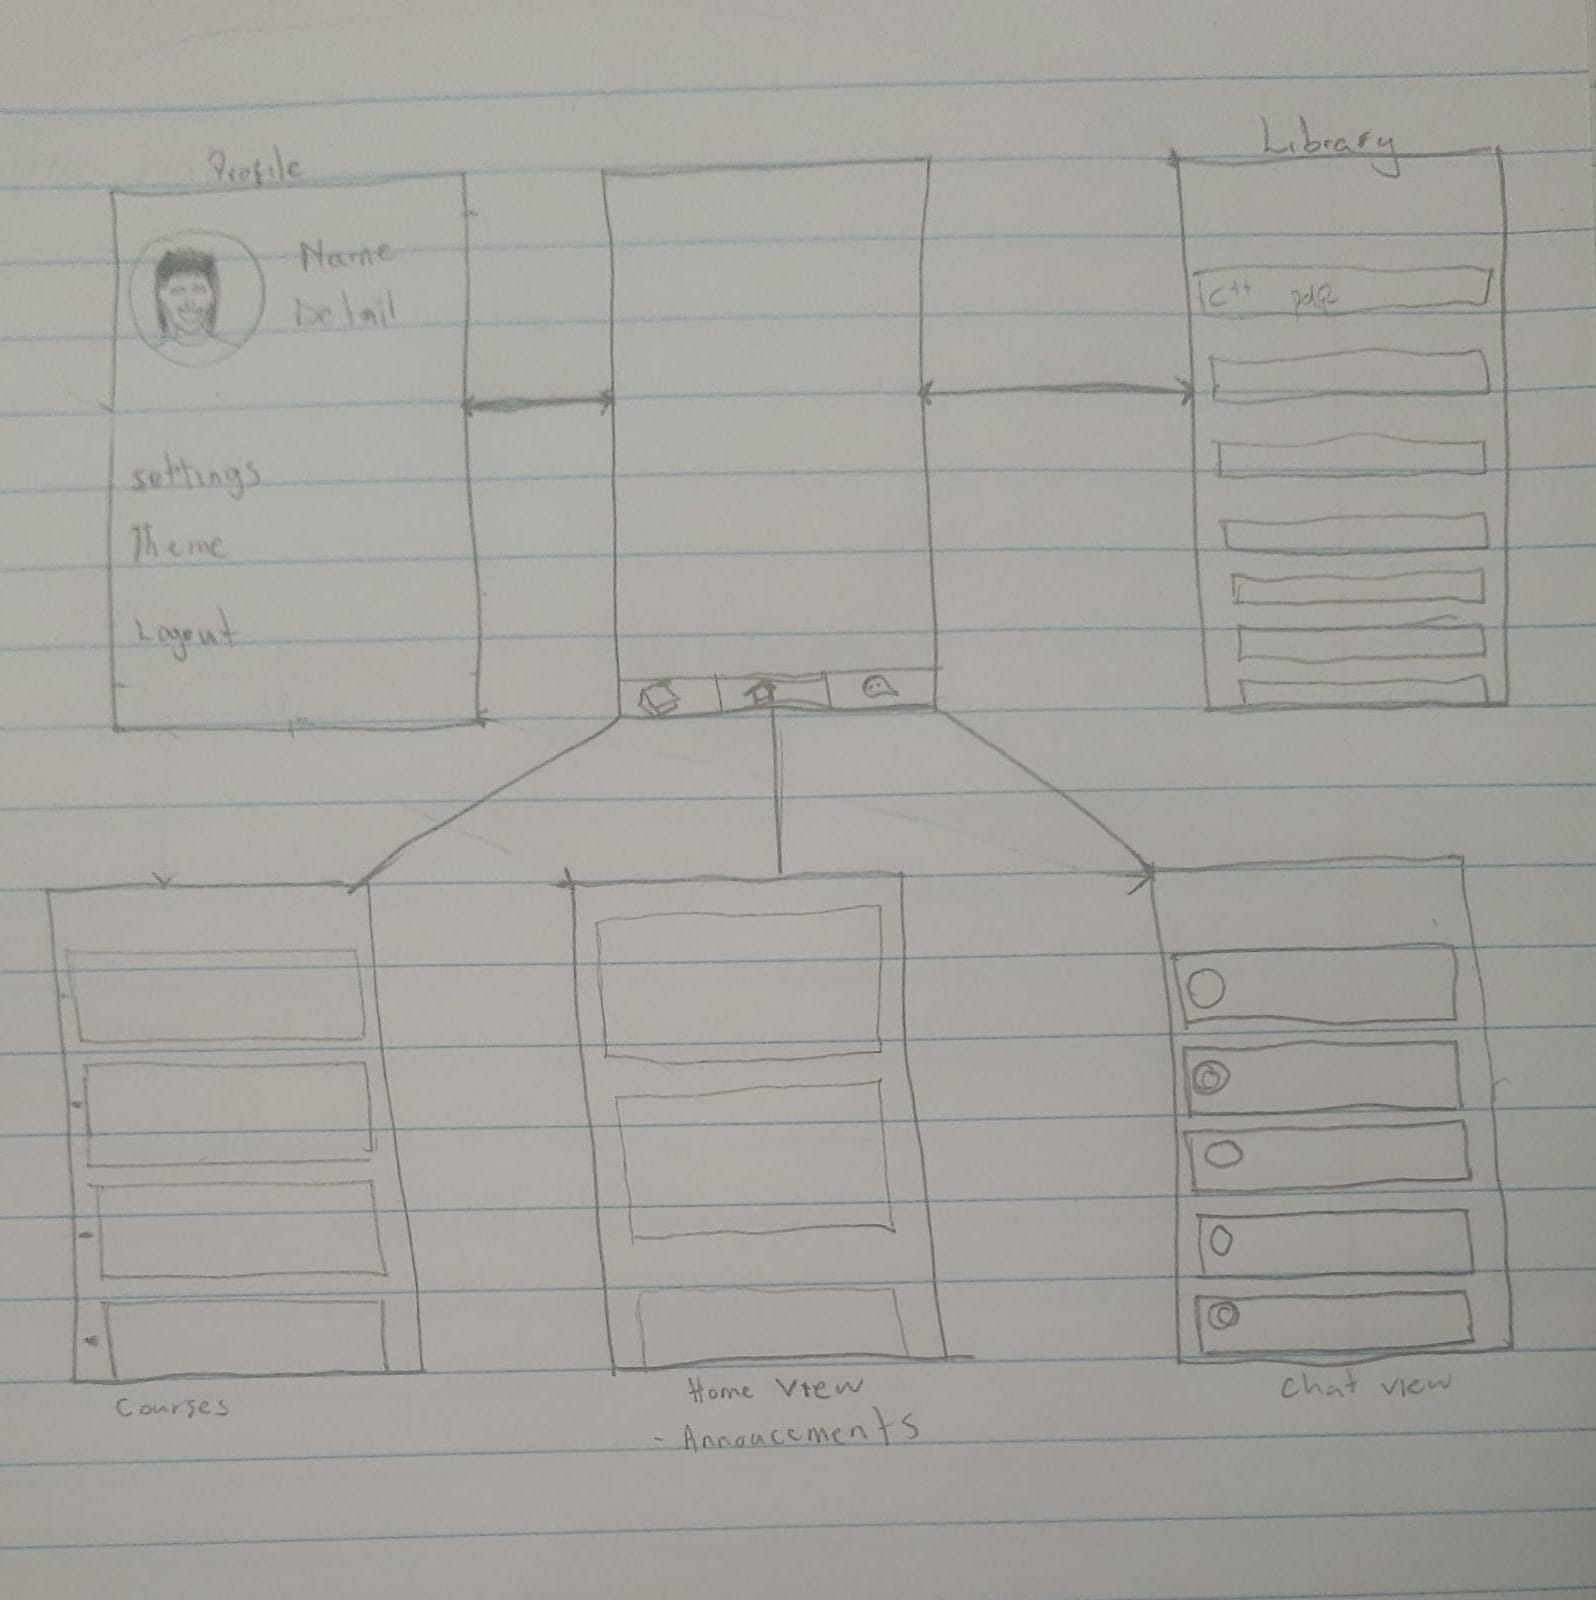 Profile
Name
Detail
settings
Theme
Logout
Library
C++ pdf
Courses
Home View
- Annoucements
Chat view